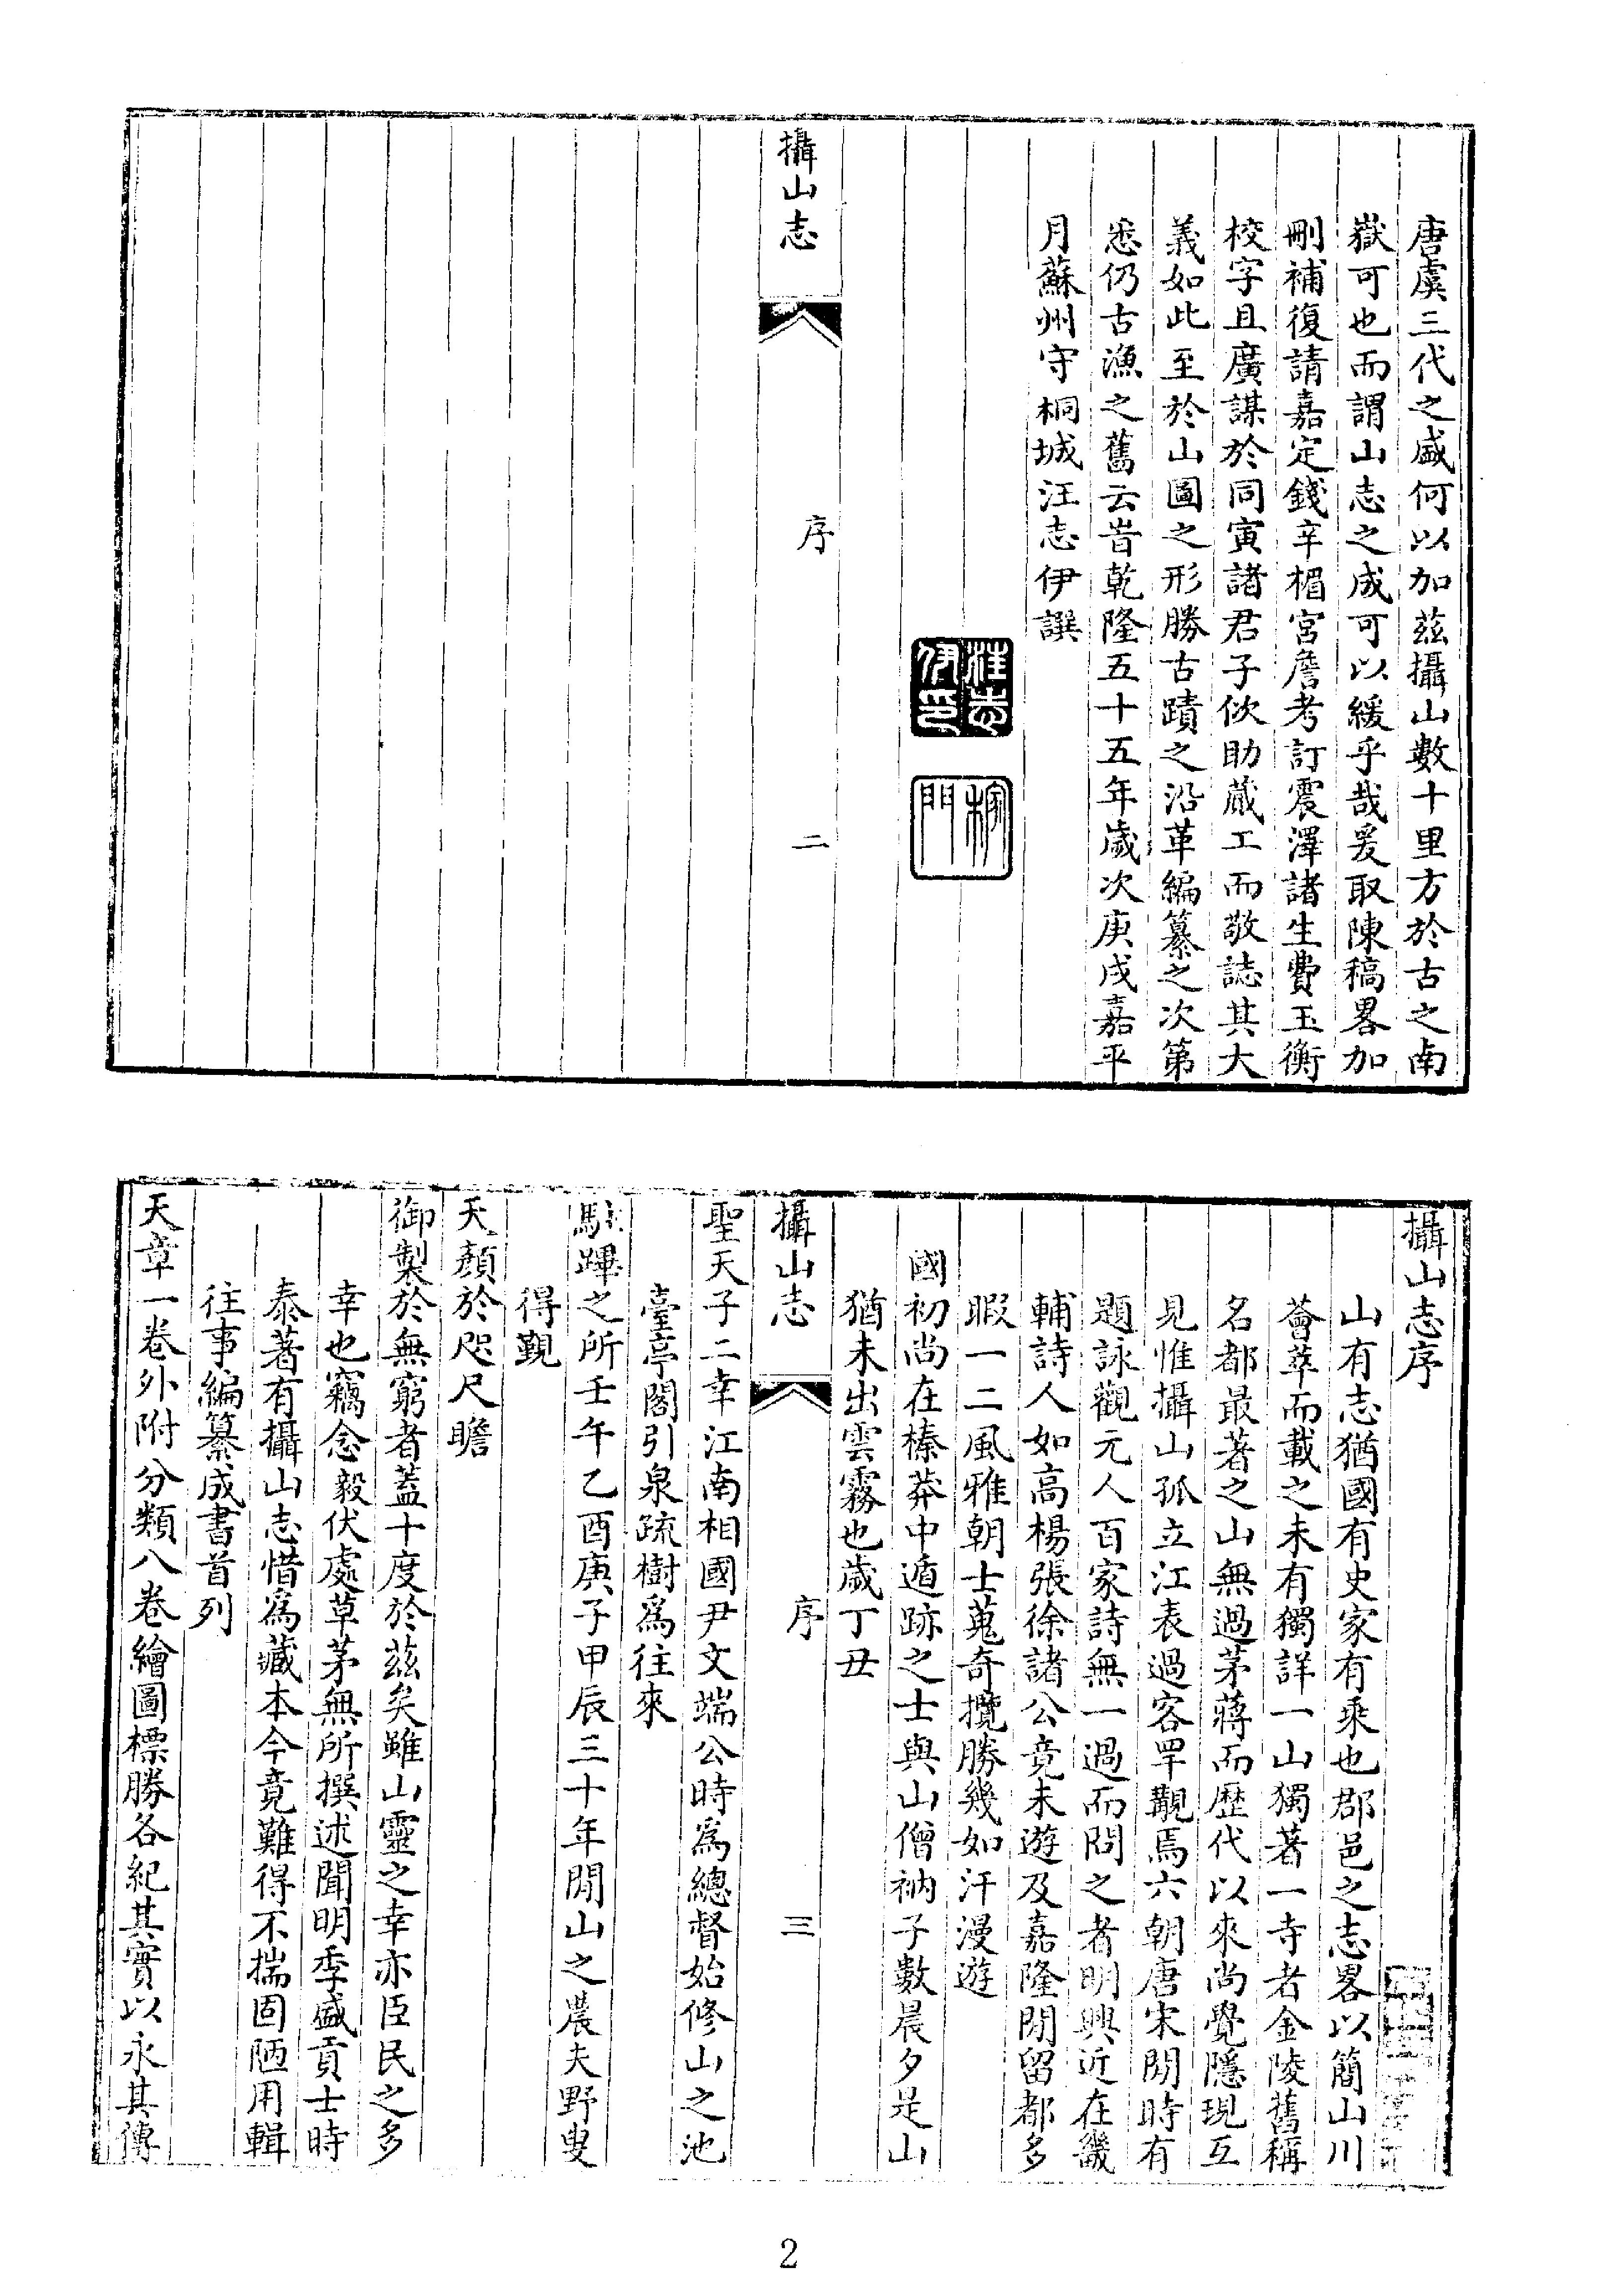 唐虞三代之盛何以加茲攝山數十里方於古之南
嶽可也而謂山志之成可以緩乎哉爰取陳稿畧加
刪補復請嘉定錢辛楣宮詹考訂震澤諸生費玉衡
校字且廣謀於同寅諸君子佽助蕆工而敬誌其大
義如此至於山圖之形勝古蹟之沿革編纂之次第
悉仍古漁之舊云旹乾隆五十五年歲次庚戌嘉平
月蘇州守桐城汪志伊譔
汪志
伊印
稼
門
攝山志
序
二
攝山志序
山有志猶國有史家有乘也郡邑之志畧以簡山川
薈萃而載之未有獨詳一山獨著一寺者金陵舊稱
名都最著之山無過茅蔣而歷代以來尚覺隱現互
見惟攝山孤立江表過客罕覯焉六朝唐宋閒時有
題詠觀元人百家詩無一過而問之者明興近在畿
輔詩人如高楊張徐諸公竟未遊及嘉隆閒留都多
暇一二風雅朝士蒐奇攬勝幾如汗漫遊
國初尚在榛莽中遁跡之士與山僧衲子數晨夕是山
猶未出雲霧也歲丁丑
攝山志
序
三
聖天子二幸江南相國尹文端公時爲總督始修山之池
臺亭閣引泉疏樹爲往來
駐蹕之所壬午乙酉庚子甲辰三十年閒山之農夫野叟
得覲
天顏於咫尺瞻
御製於無窮者蓋十度於茲矣雖山靈之幸亦臣民之多
幸也竊念毅伏處草茅無所撰述聞明季盛貢士時
泰著有攝山志惜爲藏本今竟難得不揣固陋用輯
往事編纂成書首列
天章一卷外附分類八卷繪圖標勝各紀其實以永其傳
2